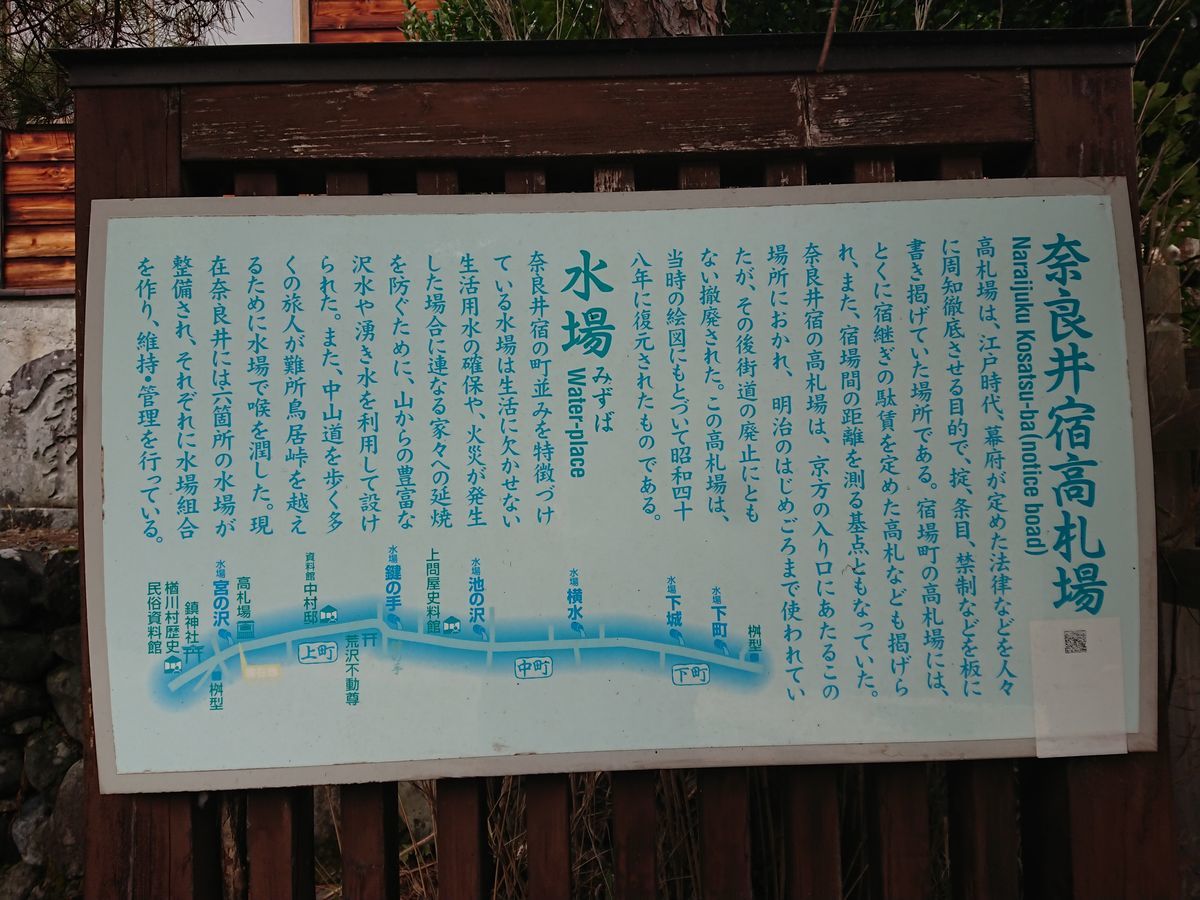 奈良井宿高札場
Naraijuku Kosatsu-ba(notice boad)
高札場は、江戸時代、幕府が定めた法律などを人々
に周知徹底させる目的で、掟、条目、禁制などを板に
書き掲げていた場所である。宿場町の高札場には、
とくに宿継ぎの駄賃を定めた高札なども掲げら
れ、また、宿場間の距離を測る基点ともなっていた。
奈良井宿の高札場は、京方の入り口にあたるこの
場所におかれ、明治のはじめごろまで使われてい
たが、その後街道の廃止にとも
ない撤廃された。この高札場は、
当時の絵図にもとづいて昭和四十
八年に復元されたものである。
水場 みずば
Water-place
奈良井宿の町並みを特徴づけ
ている水場は生活に欠かせない
生活用水の確保や、火災が発生
した場合に連なる家々への延焼
を防ぐために、山からの豊富な
沢水や湧き水を利用して設け
られた。また、中山道を歩く多
くの旅人が難所鳥居峠を越え
るために水場で喉を潤した。現
在奈良井には六箇所の水場が
整備され、それぞれに水場組合
を作り、維持・管理を行っている。
桝型
水場 下町
水場 下城
水場 横水
水場 池の沢
上問屋史料館
水場 鍵の手
資料館 中村邸
高札場
水場 宮の沢
鎮神社
楢川村歴史
民俗資料館
下町
中町
上町
荒沢不動尊
桝型